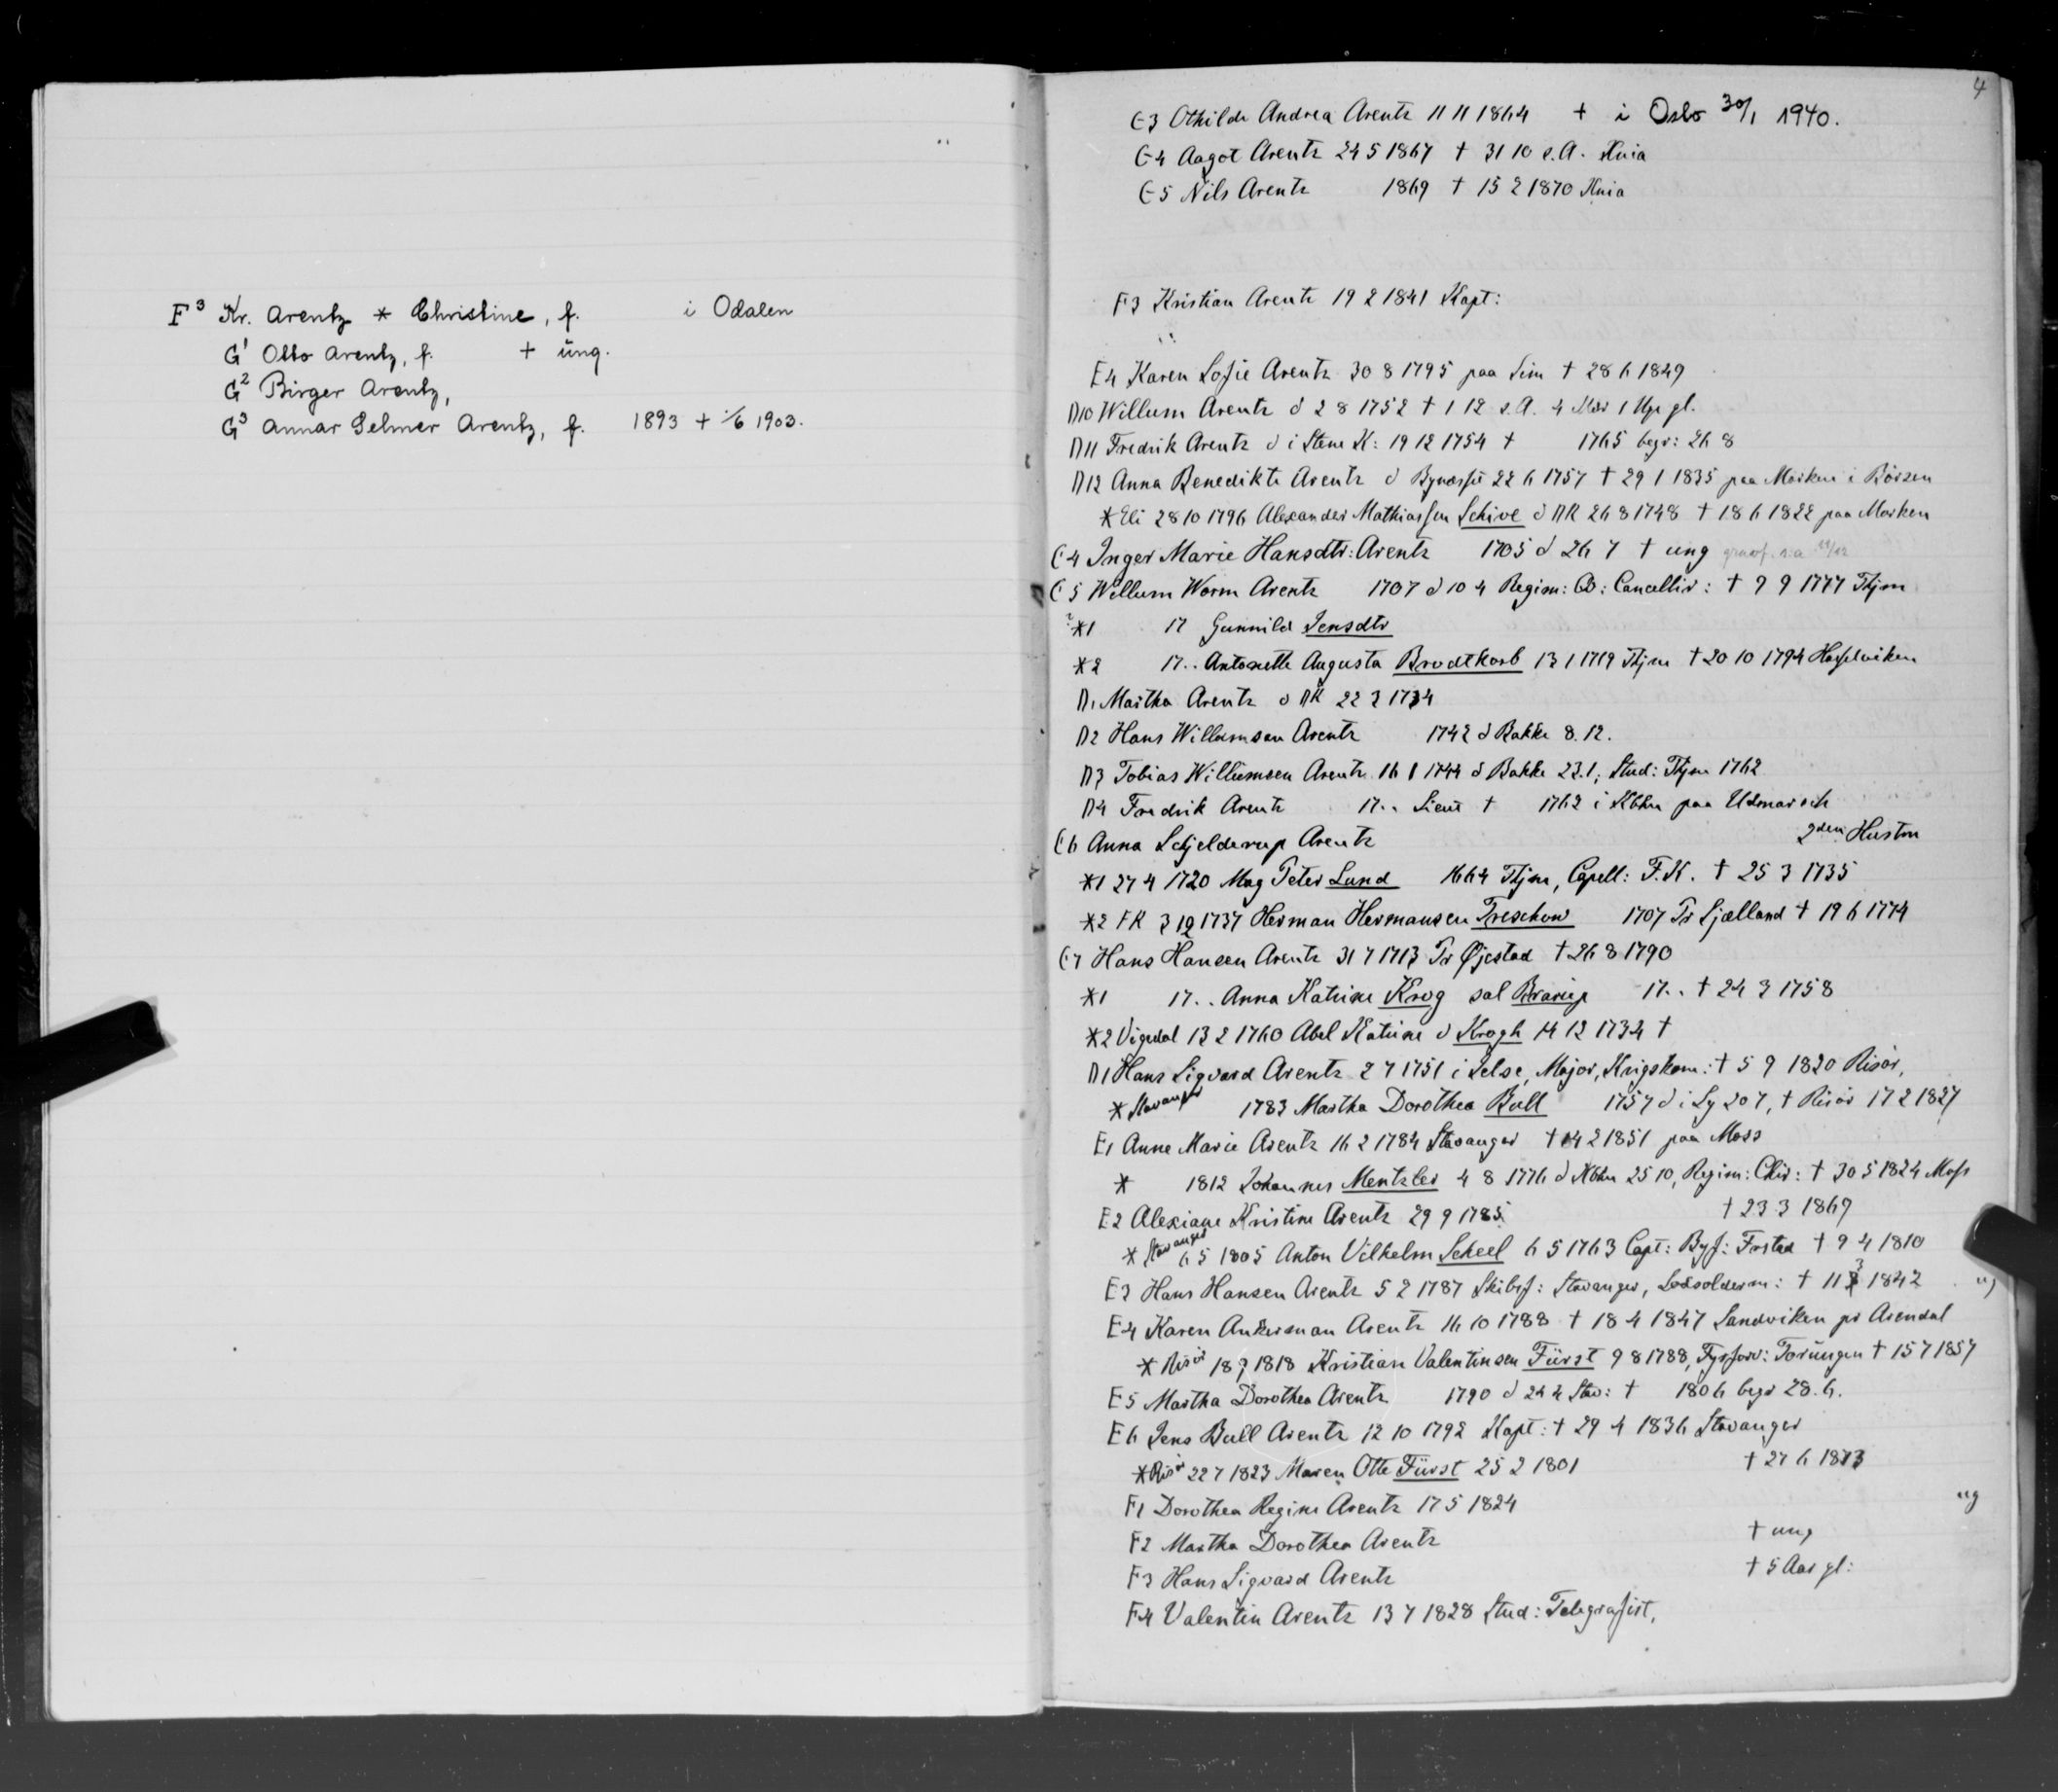 F³ Kr. Arentz * Christine, f. i Odalen
G¹ Otto Arentz, f. + ung.
G² Birger Arentz,
G³ Annar Selmer Arentz, f. 1893 + 1/6 1903.
4
G3 Othilde Andrea Arentz 11 11 1864 + i Oslo 30/1 1940.
G4 Aagot Arentz 24 5 1867 † 31 10 s.A. Knia
G5 Nils Arentz 1869 † 15 2 1870 Knia
F3 Kristian Arentz 19 2 1841 Kapt:
E4 Karen Sofie Arentz 30 8 1795 paa Lim † 28 6 1849
D10 Willum Arentz d 2 8 1752 † 1 12 s.A. 4 Mdr 1 Uge gl.
D11 Fredrik Arentz d i Stene K: 19 12 1754 † 1765 begr: 26 8
D12 Anna Benedikte Arentz d Bynæsset 22 6 1757 † 29 1 1835 paa Morken i Börsen
* Eli 28 10 1796 Alexander Mathiassen Schive d DK 26 8 1748 † 18 6 1822 paa Morken
C4 Inger Marie Hansdtr: Arentz 1705 d 26 7 † ung
C5 Willum Worm Arentz 1707 d 10 4 Regim: Qv: Cancellir: † 9 9 1777 Thjm
?*1 17 Gunnild Jensdtr
*2 17.. Antonette Augusta Brodtkorb 13 1 1719 Thjm † 20 10 1794 Hasselviken
D1 Martha Arentz d DK 22 2 1734
D2 Hans Willumsen Arentz 1742 d Bakke 8.12.
D3 Tobias Willumsen Arentz 16 1 1744 d Bakke 23.1, Stud: Thjm 1762
D4 Fredrik Arentz 17.. Lieut † 1762 i Kbhn paa Udmarsch
C6 Anna Schjelderup Arentz 2den Hustru
*1 27 4 1720 Mag Peter Lund 1664 Thjm, Capell: F.K. † 25 3 1735
*2 FK 3 12 1737 Herman Hermansen Treschow 1707 Pr Sjælland † 19 6 1774
C7 Hans Hansen Arentz 31 7 1713 Pr Øjestad † 26 8 1790
*1 17.. Anna Katrine Krog sal Brarup 17.. † 24 3 1758
*2 Vigedal 13 2 1760 Abel Katrine d Krogh 14 12 1734 †
D1 Hans Sigvard Arentz 2 7 1751 i Jelse, Major, Krigskom: † 5 9 1820 Risör,
* Stavanger 1783 Martha Dorothea Bull 1757 d i Ly 20 7, † Risör 17 2 1827
E1 Anne Marie Arentz 16 2 1784 Stavanger † 14 2 1851 paa Moss
* 1812 Johannes Mentzler 4 8 1776 d Kbhn 25 10, Regim: Chir: † 30 5 1824 Moss
E2 Alexiane Kristine Arentz 29 9 1785 † 23 3 1869
* Stavanger 6 5 1805 Anton Vilhelm Scheel 6 5 1763 Capt: Byf: Frstad † 9 4 1810
E3 Hans Hansen Arentz 5 2 1787 Skibsf: Stavanger, Lodsolderm: † 11 3 1842 ug
E4 Karen Ankerman Arentz 16 10 1788 † 18 4 1847 Sandviken pr Arendal
* Risör 18 9 1818 Kristian Valentinsen Fürst 9 8 1788, Fyrforv: Torungen † 15 7 1857
E5 Martha Dorothea Arentz 1790 d 24 4 Stav: † 1806 begr 28.6.
E6 Jens Bull Arentz 12 10 1792 Kapt: † 29 4 1836 Stavanger
* Risör 22 7 1823 Maren Otte Fürst 25 2 1801 † 27 6 1873
F1 Dorothea Regine Arentz 17 5 1824 ug
F2 Martha Dorothea Arentz † ung
F3 Hans Sigvard Arentz † 5 Aar gl:
F4 Valentin Arentz 13 7 1828 Stud: Telegrafist,